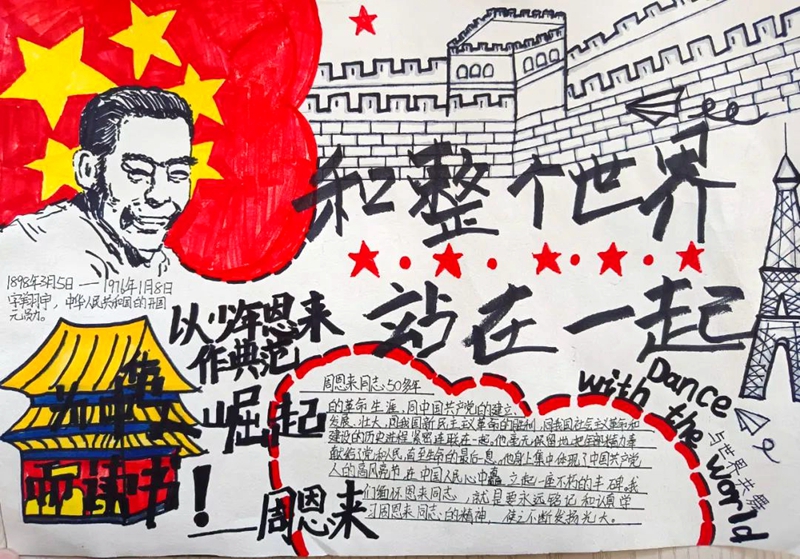 和整个世界
站在一起
1898年3月5日——1976年1月8日
字翔宇，中华人民共和国的开国
元勋。
以少年恩来
作典范
为中华
崛起
而读书！
——周恩来
周恩来同志50多年
的革命生涯，同中国共产党的建立、
发展、壮大，同我国新民主主义革命的胜利，同我国社会主义革命和
建设的历史进程紧密连联在一起，他毫无保留地把全部精力奉
献给了党和人民，直至生命的最后一息，他身上集中体现了中国共产党
人的高风亮节，在中国人民心中矗立起一座不朽的丰碑，我
们缅怀恩来同志，就是要永远铭记和认真学
习周恩来同志的精神，使之不断发扬光大。
Dance
with the world
与世界共舞